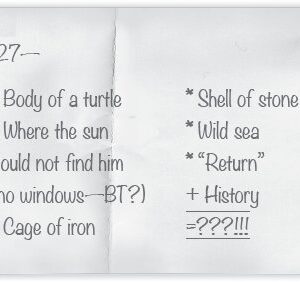 27—
Body of a turtle
Where the sun
ould not find him
no windows—BT?)
Cage of iron
* Shell of stone
* Wild sea
* “Return”
+ History
=???!!!